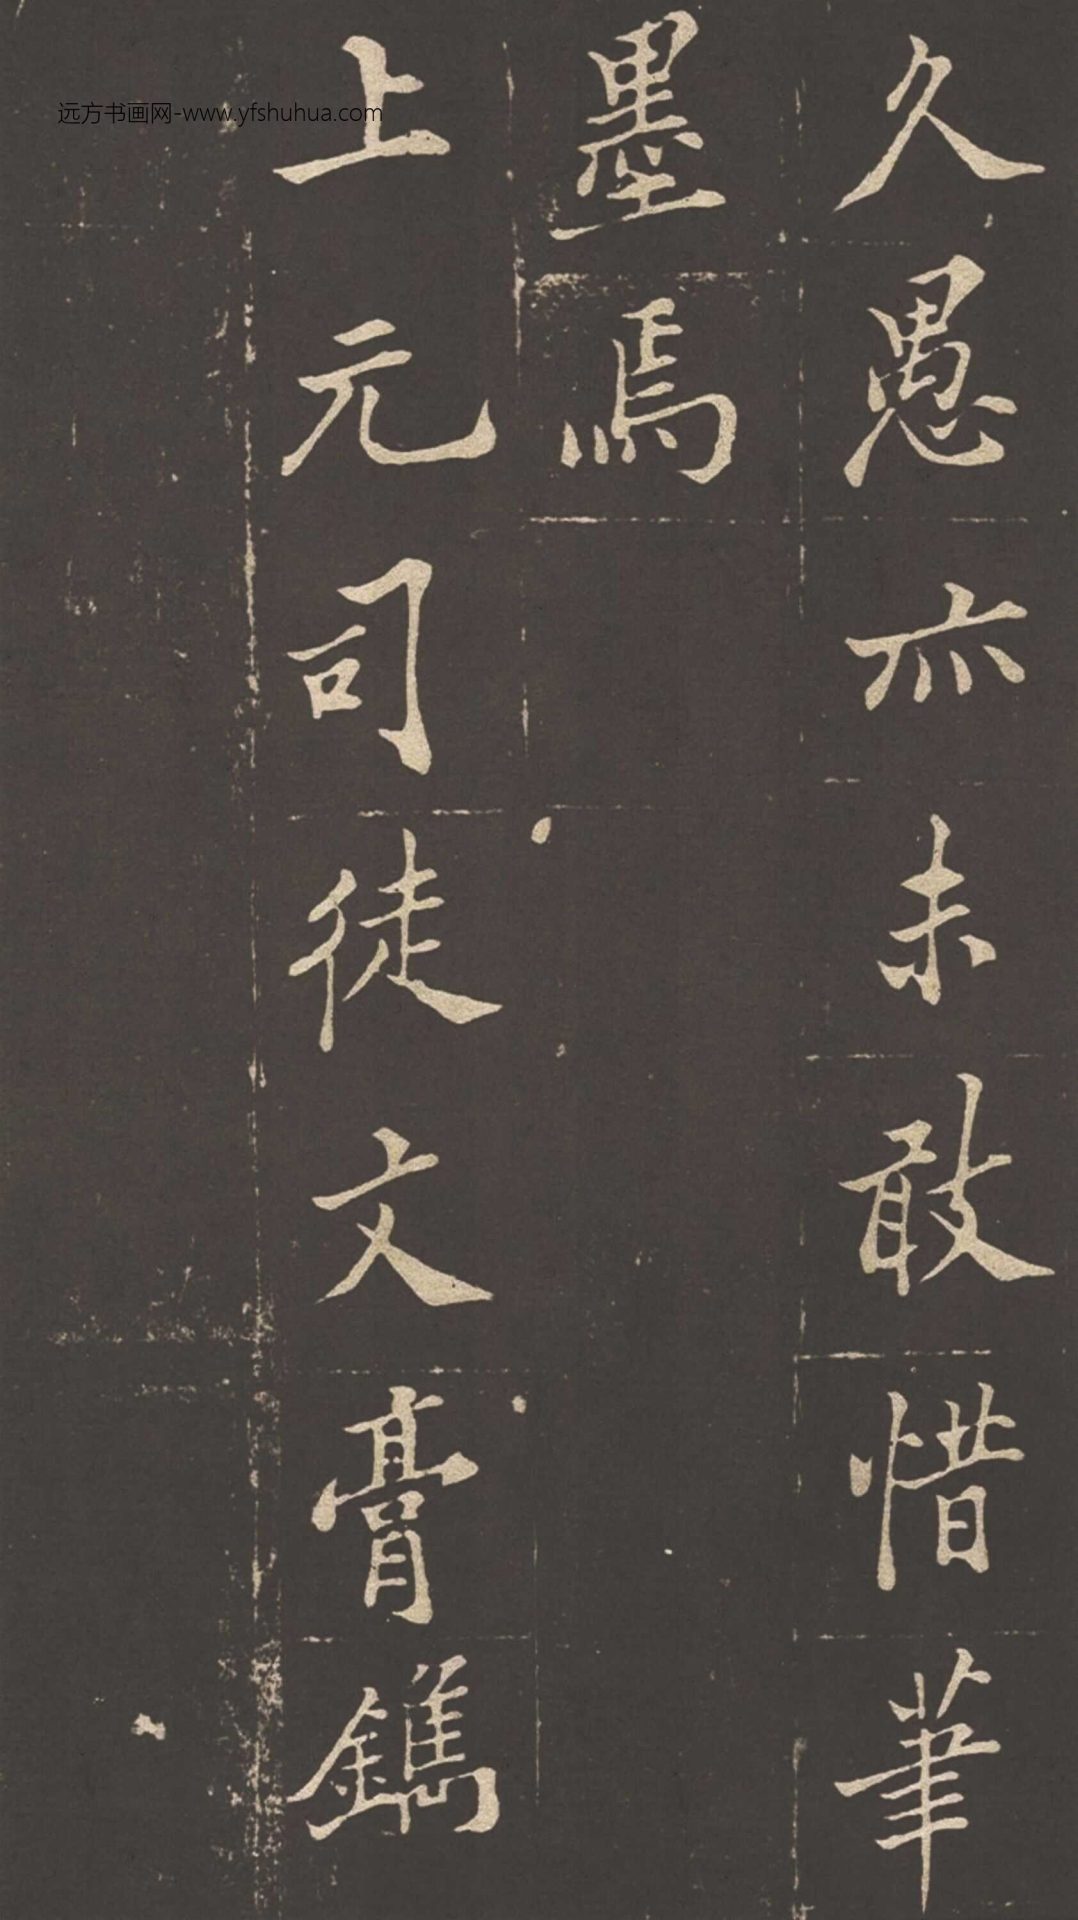 久愚亦未敢惜筆
墨焉
上元司徒文膏鐫
远方书画网-www.yfshuhua.com